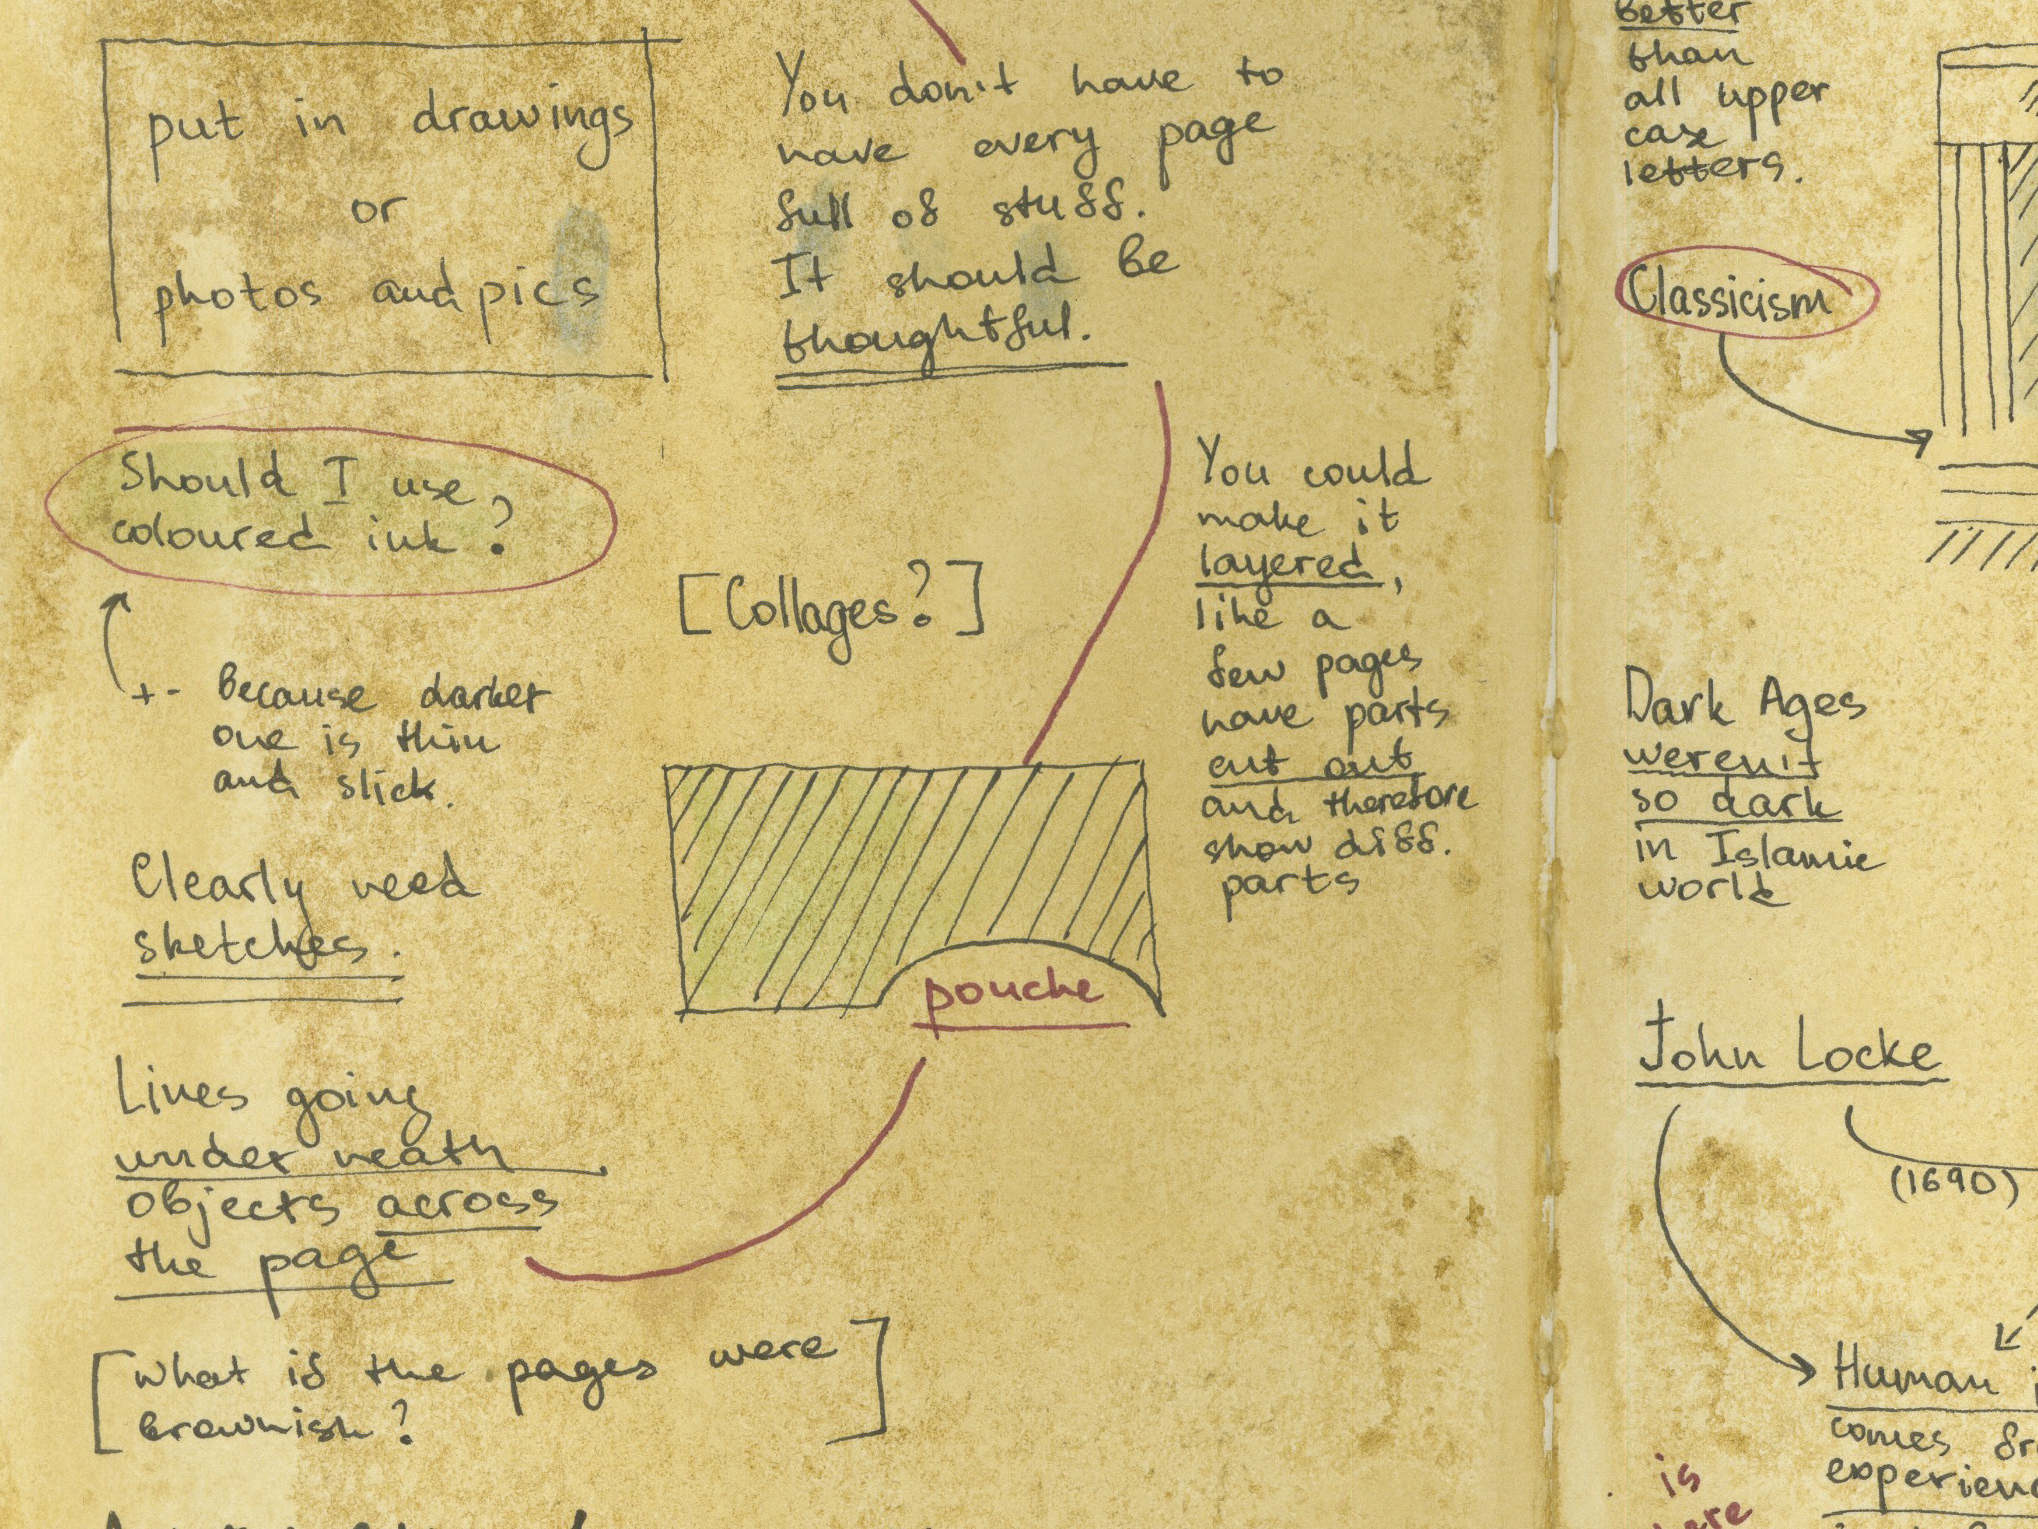 put in drawings
or
photos and pics
You don't have to
have every page
full of stuff.
It should be
thoughtful.
Should I use
coloured ink?
+- Because darker
one is thin
and slick.
[Collages?]
You could
make it
layered,
like a
few pages
have parts
cut out
and therefore
show diff.
parts
Clearly need
sketches.
pouche
Lines going
under neath
objects across
the page
[What if the pages were
brownish?]
Better
than
all upper
case
letters.
Classicism
Dark Ages
weren't
so dark
in Islamic
world
John Locke
(1690)
Human
comes
is